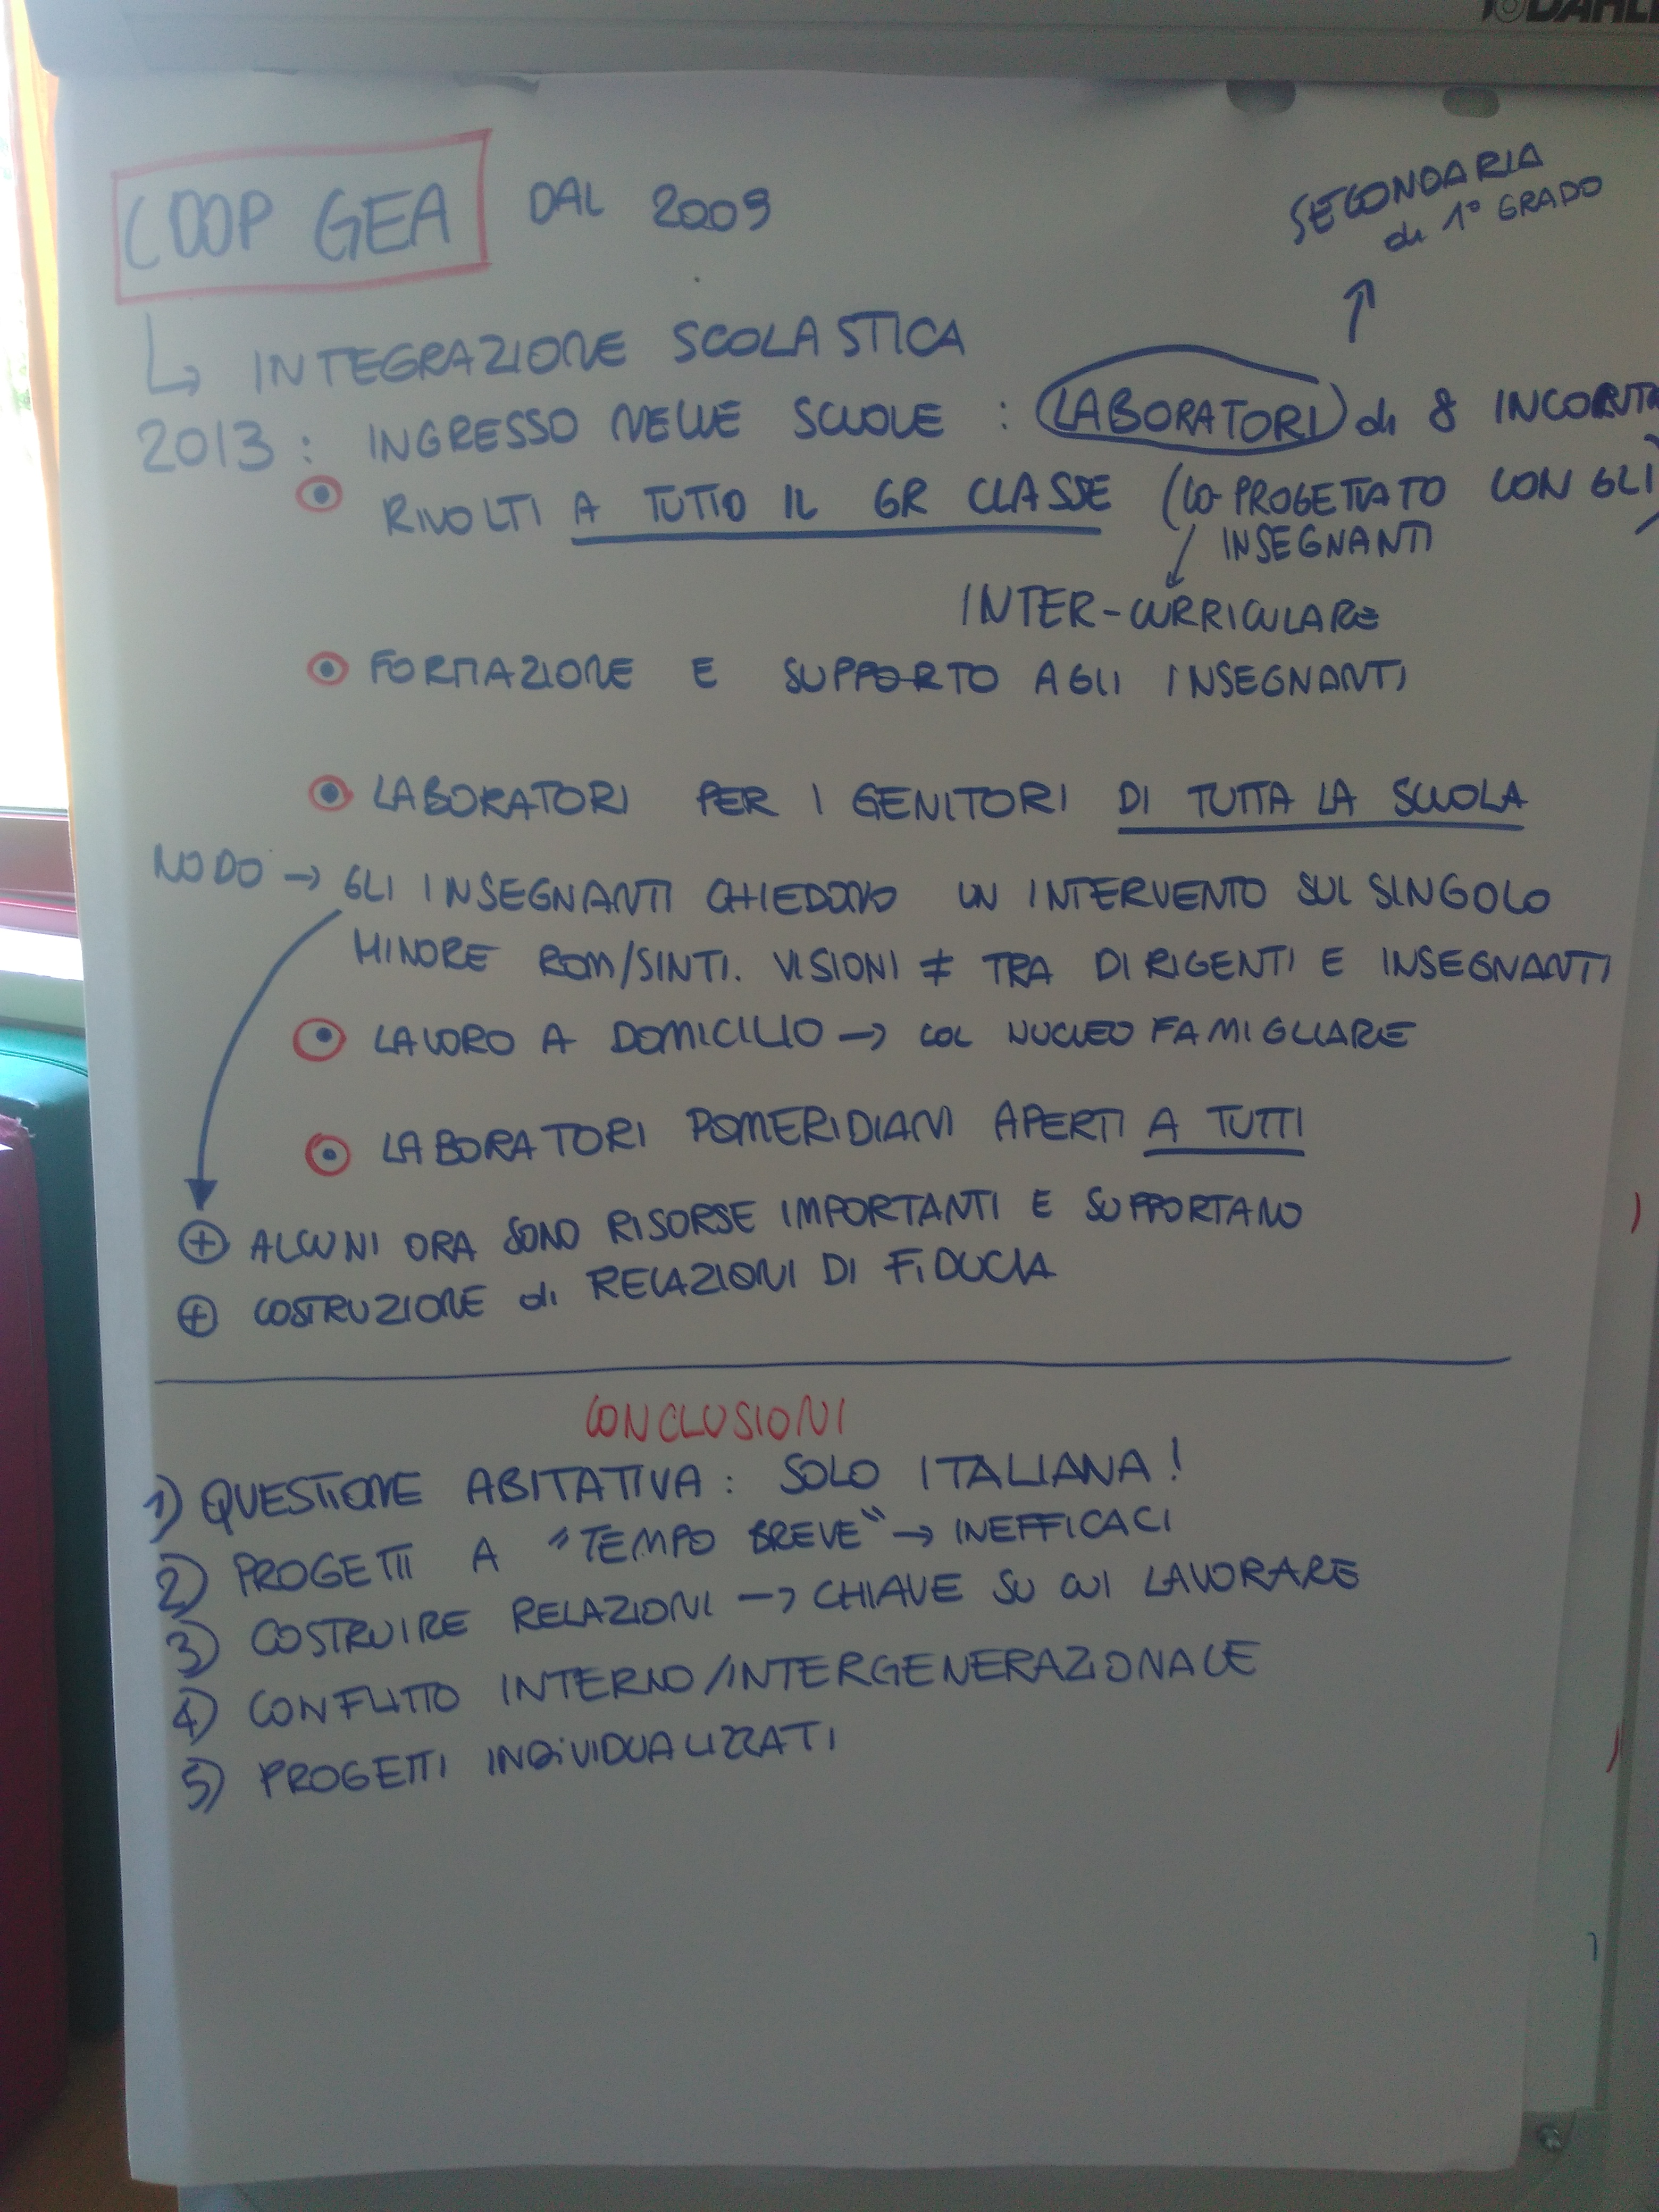 DAHLE
COOP GEA DAL 2009
SECONDARIA
di 1° GRADO
↳ INTEGRAZIONE SCOLASTICA
2013: INGRESSO NELLE SCUOLE : LABORATORI di 8
RIVOLTI A TUTTO IL GR CLASSE (CO-PROGETTATO CON GLI
INSEGNANTI)
INTER-CURRICULARE
FORMAZIONE E SUPPORTO AGLI INSEGNANTI
LABORATORI PER I GENITORI DI TUTTA LA SCUOLA
NODO → GLI INSEGNANTI CHIEDONO UN INTERVENTO SUL SINGOLO
MINORE ROM/SINTI. VISIONI ≠ TRA DIRIGENTI E INSEGNANTI
LAVORO A DOMICILIO → COL NUCLEO FAMIGLIARE
LABORATORI POMERIDIANI APERTI A TUTTI
⊕ ALCUNI ORA SONO RISORSE IMPORTANTI E SUPPORTANO
⊕ COSTRUZIONE di RELAZIONI DI FIDUCIA
CONCLUSIONI
1) QUESTIONE ABITATIVA : SOLO ITALIANA!
2) PROGETTI A "TEMPO BREVE" → INEFFICACI
3) COSTRUIRE RELAZIONI → CHIAVE SU CUI LAVORARE
4) CONFLITTO INTERNO/INTERGENERAZIONALE
5) PROGETTI INDIVIDUALIZZATI